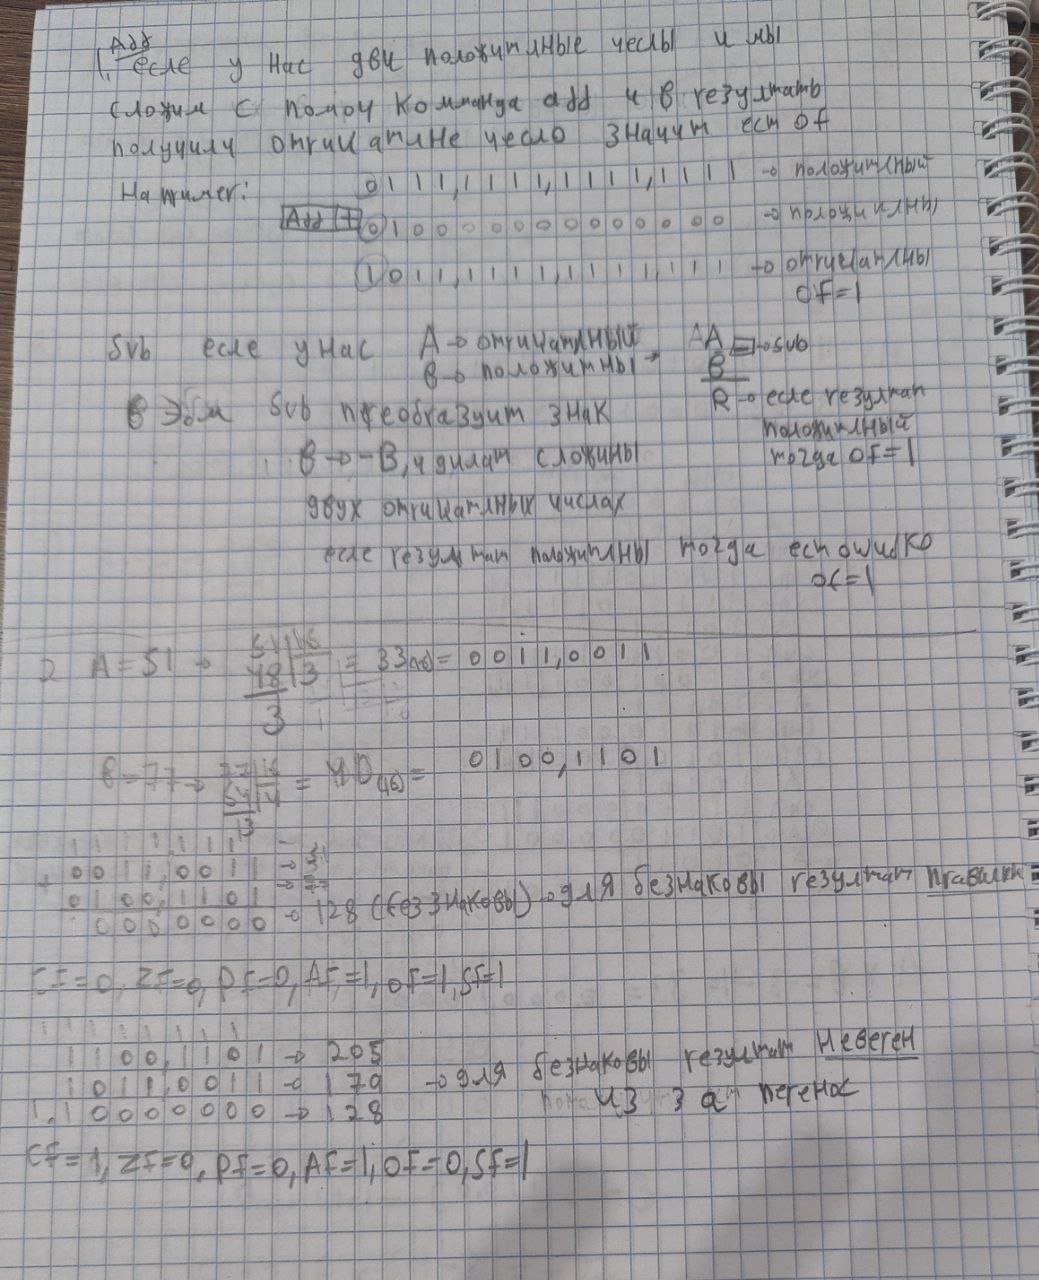 Add
1. если у нас две положитлные числы и мы
сложим с помоч комманда add и в резултать
получили отрицатлне число значит ест OF
Например: 0111,1111,1111,1111 → положитлный
Add + 0100000000000000 → положитлны
1011,1111,1111,111 → отрицатлны
OF=1
Sub если у нас A → отрицатлный
B → положитны
A - → sub
B
R → если резултат
положитлный
тогда OF=1
В Эвм Sub преобразуит знак
B → -B, и дилат сложины
двух отрицатлных числах
если резултат положитлны тогда ест ошибко
OF=1
2 A = 51 → 51 16 = 33(16) = 0011,0011
48 3
3
B = 77 → 77 16 = 4D(16) = 0100,1101
64 4
13
1111,111
+ 0011,0011 → 51
0100,1101 → 77
10000000 → 128 (без знаковы) → для безнаковы резултат правилн
CF=0, ZF=0, PF=0, AF=1, OF=1, SF=1
1100,1101 → 205
1011,0011 → 179 → для безнаковы резултат Неверен
1.10000000 → 128 из за перенос
CF=1, ZF=0, PF=0, AF=1, OF=0, SF=1